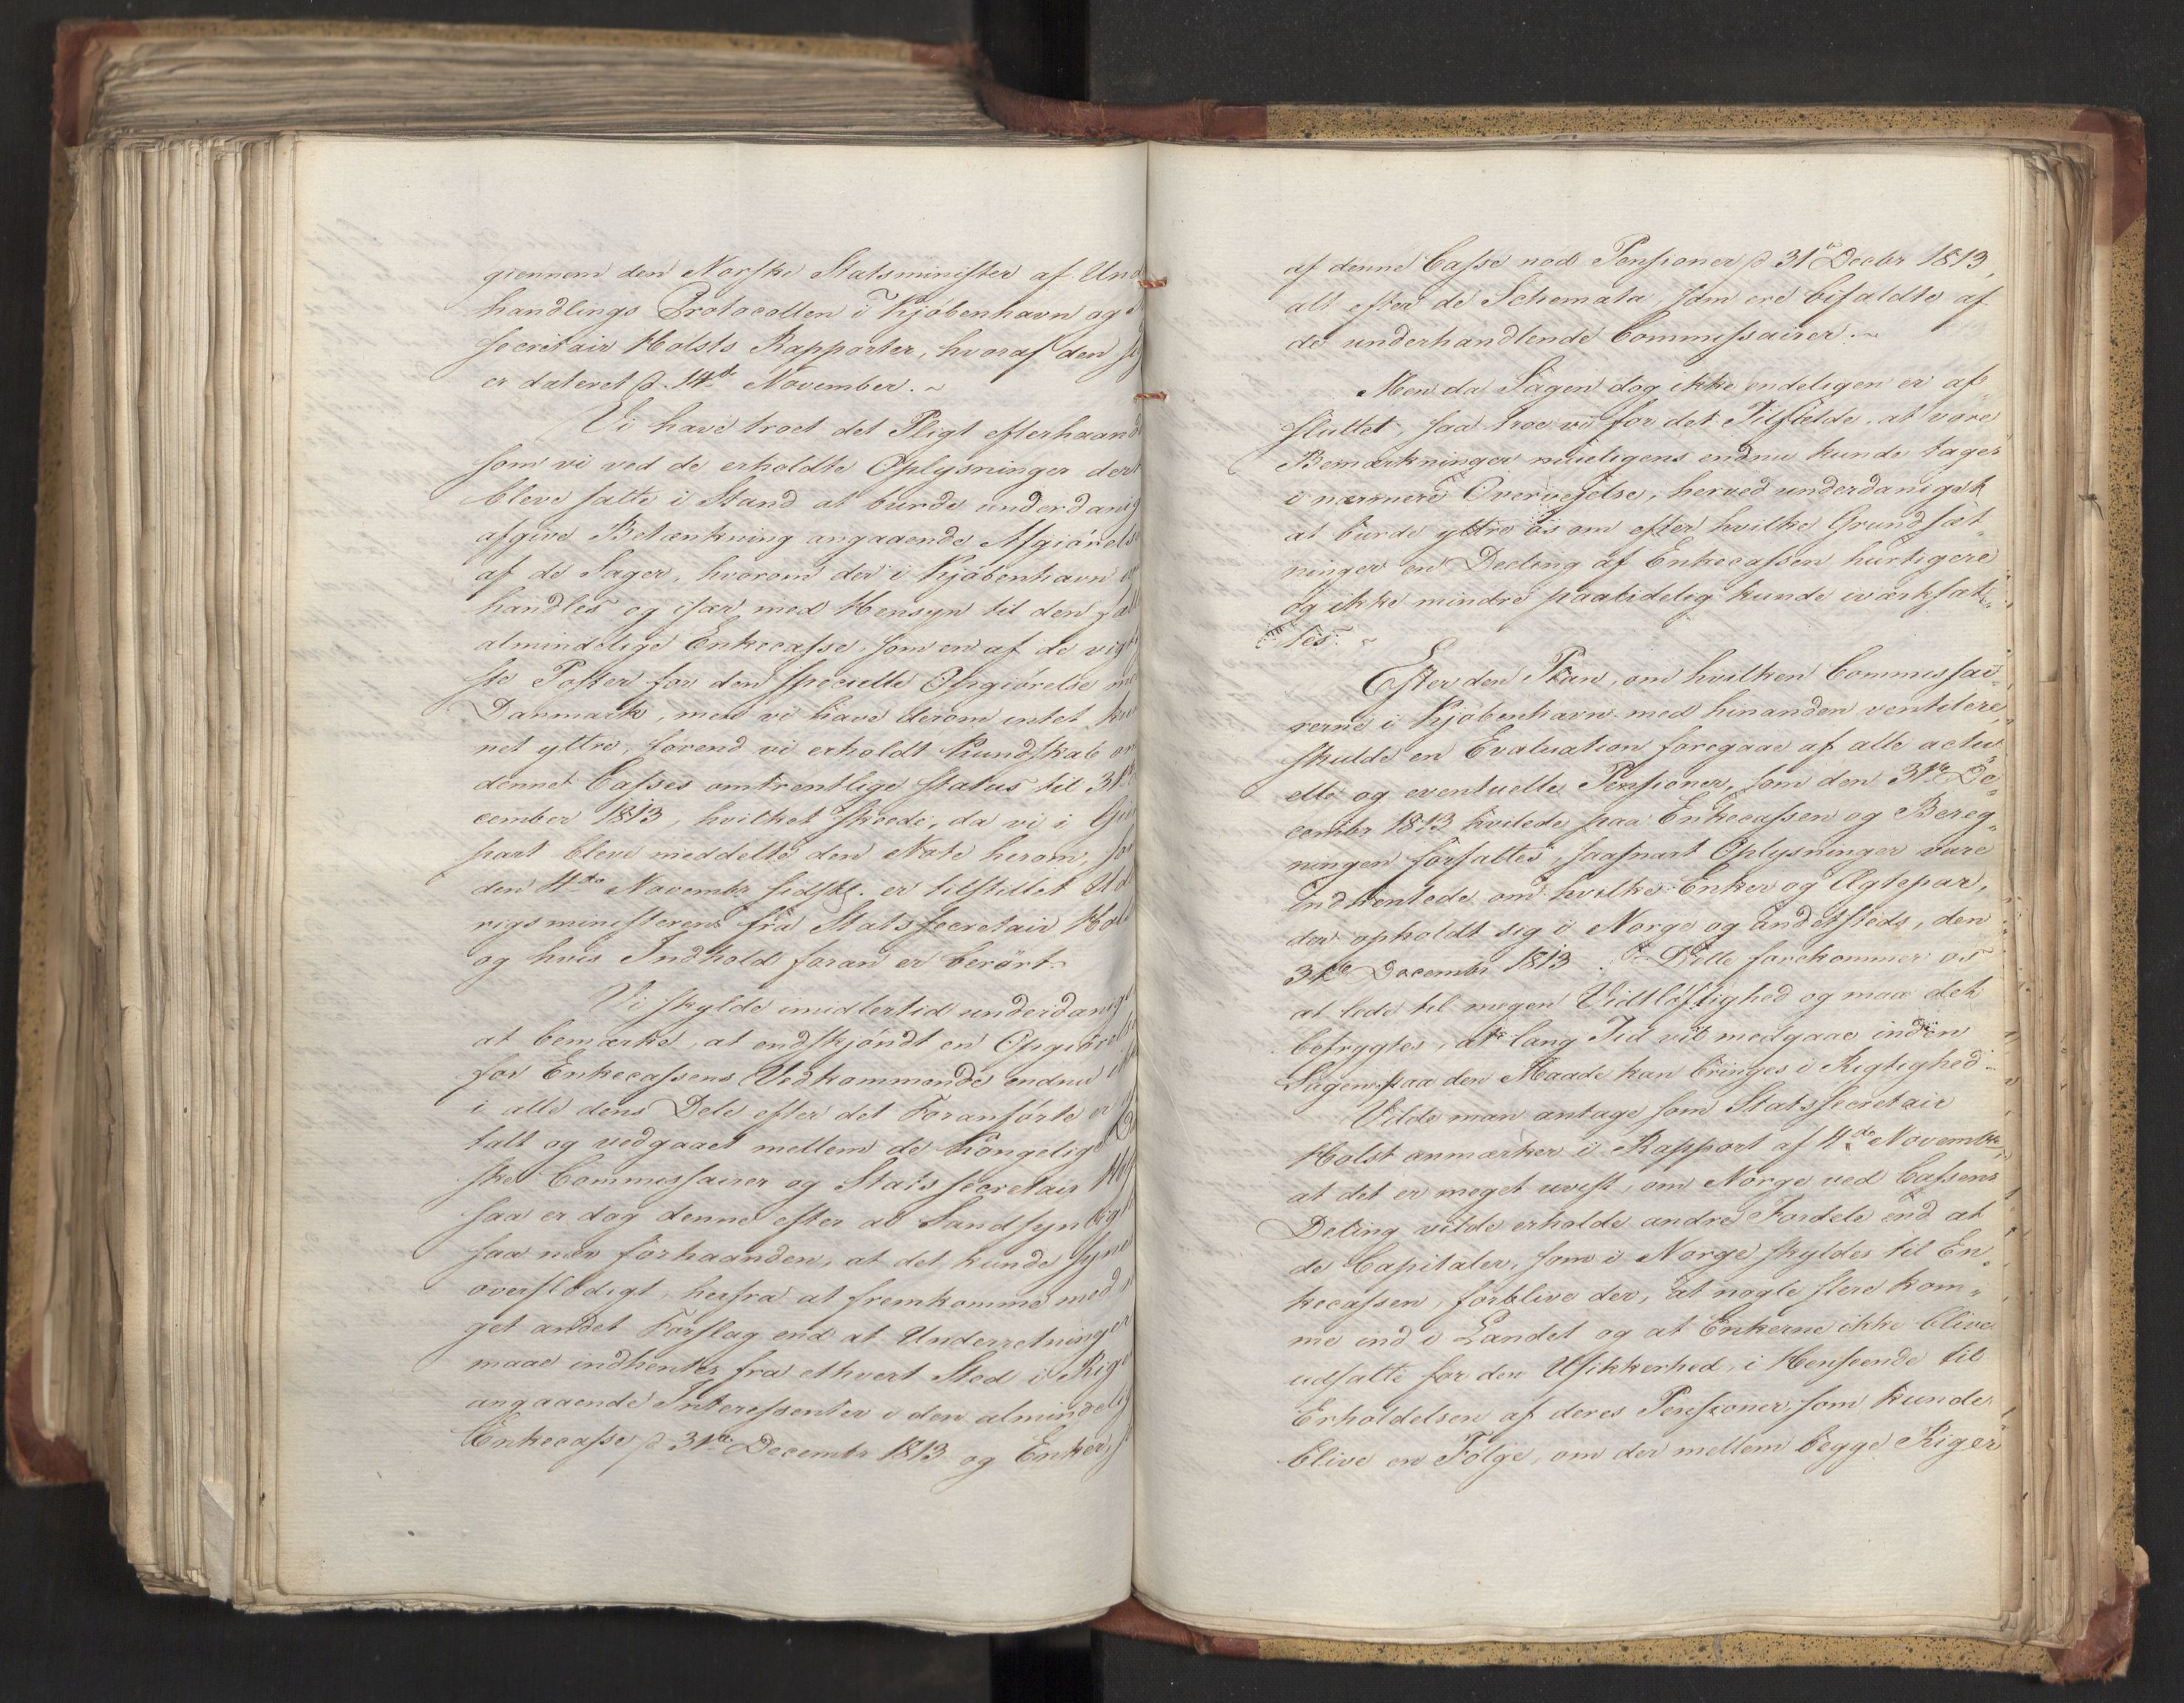 giennem den Norske Statsminister af Und
handlings Protocollen i Kjøbenhavn og
secretair Holsts Rapporter, hvoraf den
er dateret p. 14de November. ~
Vi have troet det Pligt efterhaand
som vi ved de erholdte Oplysninger der
bleve satte i Stand at burde underdanig
afgive Betænkning angaaende Afgiørelse
af de Sager, hvorom der i Kjøbenhavn
handles og især med Hensyn til den
almindelige Enkecasse, som en af de vigt
ste Poster for den specielle Opgiørelse med
Danmark, men vi have derom intet kun
net yttre, førend vi erholdt Kundskab om
dennes Casses omtrentlige status til 31te
cember 1813, hvilket skeede, da vi i Gien
part bleve meddelte den Note herom, som
den 4de Novembr. sidstl. er tilstillet Ud
rigsministeren fra Statssecretair Holst
og hvis Indhold foran er berørt.
Vi skylde imidlertid underdanigst
at bemærke, at endskjøndt en Opgiørelse
for Enkecassens Vedkommende endnu
i alle dens Dele efter det Foranførte er
talt og vedgaaet mellem de Kongelige
ske Commissairer og Statssecretair Holst
saa er dog denne efter al Sandsynligh
saa nær forhaanden, at det kunde synes
overflødigt herfra at fremkomme med
get andet Forslag end at Underretninger
maae indhentes fra ethvert Sted i Riget
angaaende Interessenter i den almindelig
Enkecasse p 31te Decembr 1813 og Enker,
af denne Casse nød Pensioner p 31te Decbr 1813,
alt efter de Schemata, som ere bifaldte af
de underhandlende Commissairer. ~
Men da Sagen dog ikke endeligen er af
sluttet, saa troe vi for det Tilfælde, at vore
Bemærkninger mueligens endnu kunde tages
i nærmere Overveielse, herved underdanigst
at burde yttre os om efter hvilke Grundsæt„
ninger en Deeling af Enkecassen hurtigere
og ikke mindre paalidelig kunde iværksæt„
tes. ~
Efter den Plan, om hvilken Commissai„
rerne i Kjøbenhavn med hinanden ventilere,
skulde en Evaluation foregaae af alle actu„
elle og eventuelle Pensioner, som den 31te De„
cembr 1813 hvilede paa Enkecassen og Bereg„
ningen forfattes, saasnart Oplysninger vare
indhentede om hvilke Enker og Ægtepar,
der opholdt sig i Norge og andetsteds, den
31te Decembr 1813. Dette forekommer os
at lede til megen Vidtløftighed og maa det
befrygtes, at lang Tid vil medgaae inden
Sagen paa den Maade kan bringes i Rigtighed.
Vilde man antage som Statssecretair
Holst anmærker i Rapport af 4de Novembr,
at det er meget uvist, om Norge ved Cassens
Deling vilde erholde andre Fordele end at
de Capitaler, som i Norge skyldes til En„
kecassen, forblive der, at nogle flere kom„
me ind i Landet og at Enkerne ikke blive
udsatte for den Usikkerhed, i Henseende til
Erholdelsen af deres Pensioner, som kunde
blive en Følge, om der mellem begge Riger